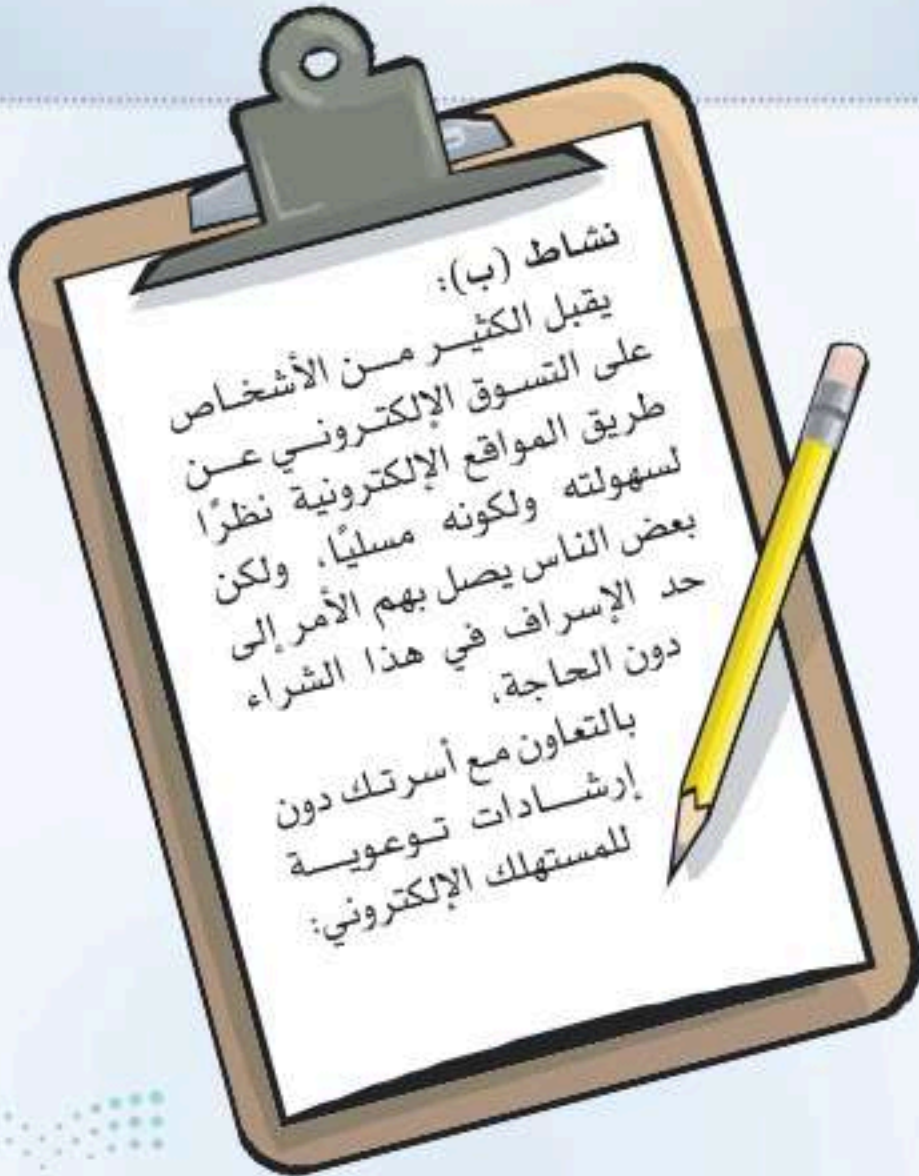 نشاط (ب):
يقبل الكثير من الأشخاص
على التسوق الإلكتروني عن
طريق المواقع الإلكترونية نظرًا
لسهولته ولكونه مسليًا، ولكن
بعض الناس يصل بهم الأمر إلى
حد الإسراف في هذا الشراء
دون الحاجة.
بالتعاون مع أسرتك دون
إرشادات توعوية
للمستهلك الإلكتروني: